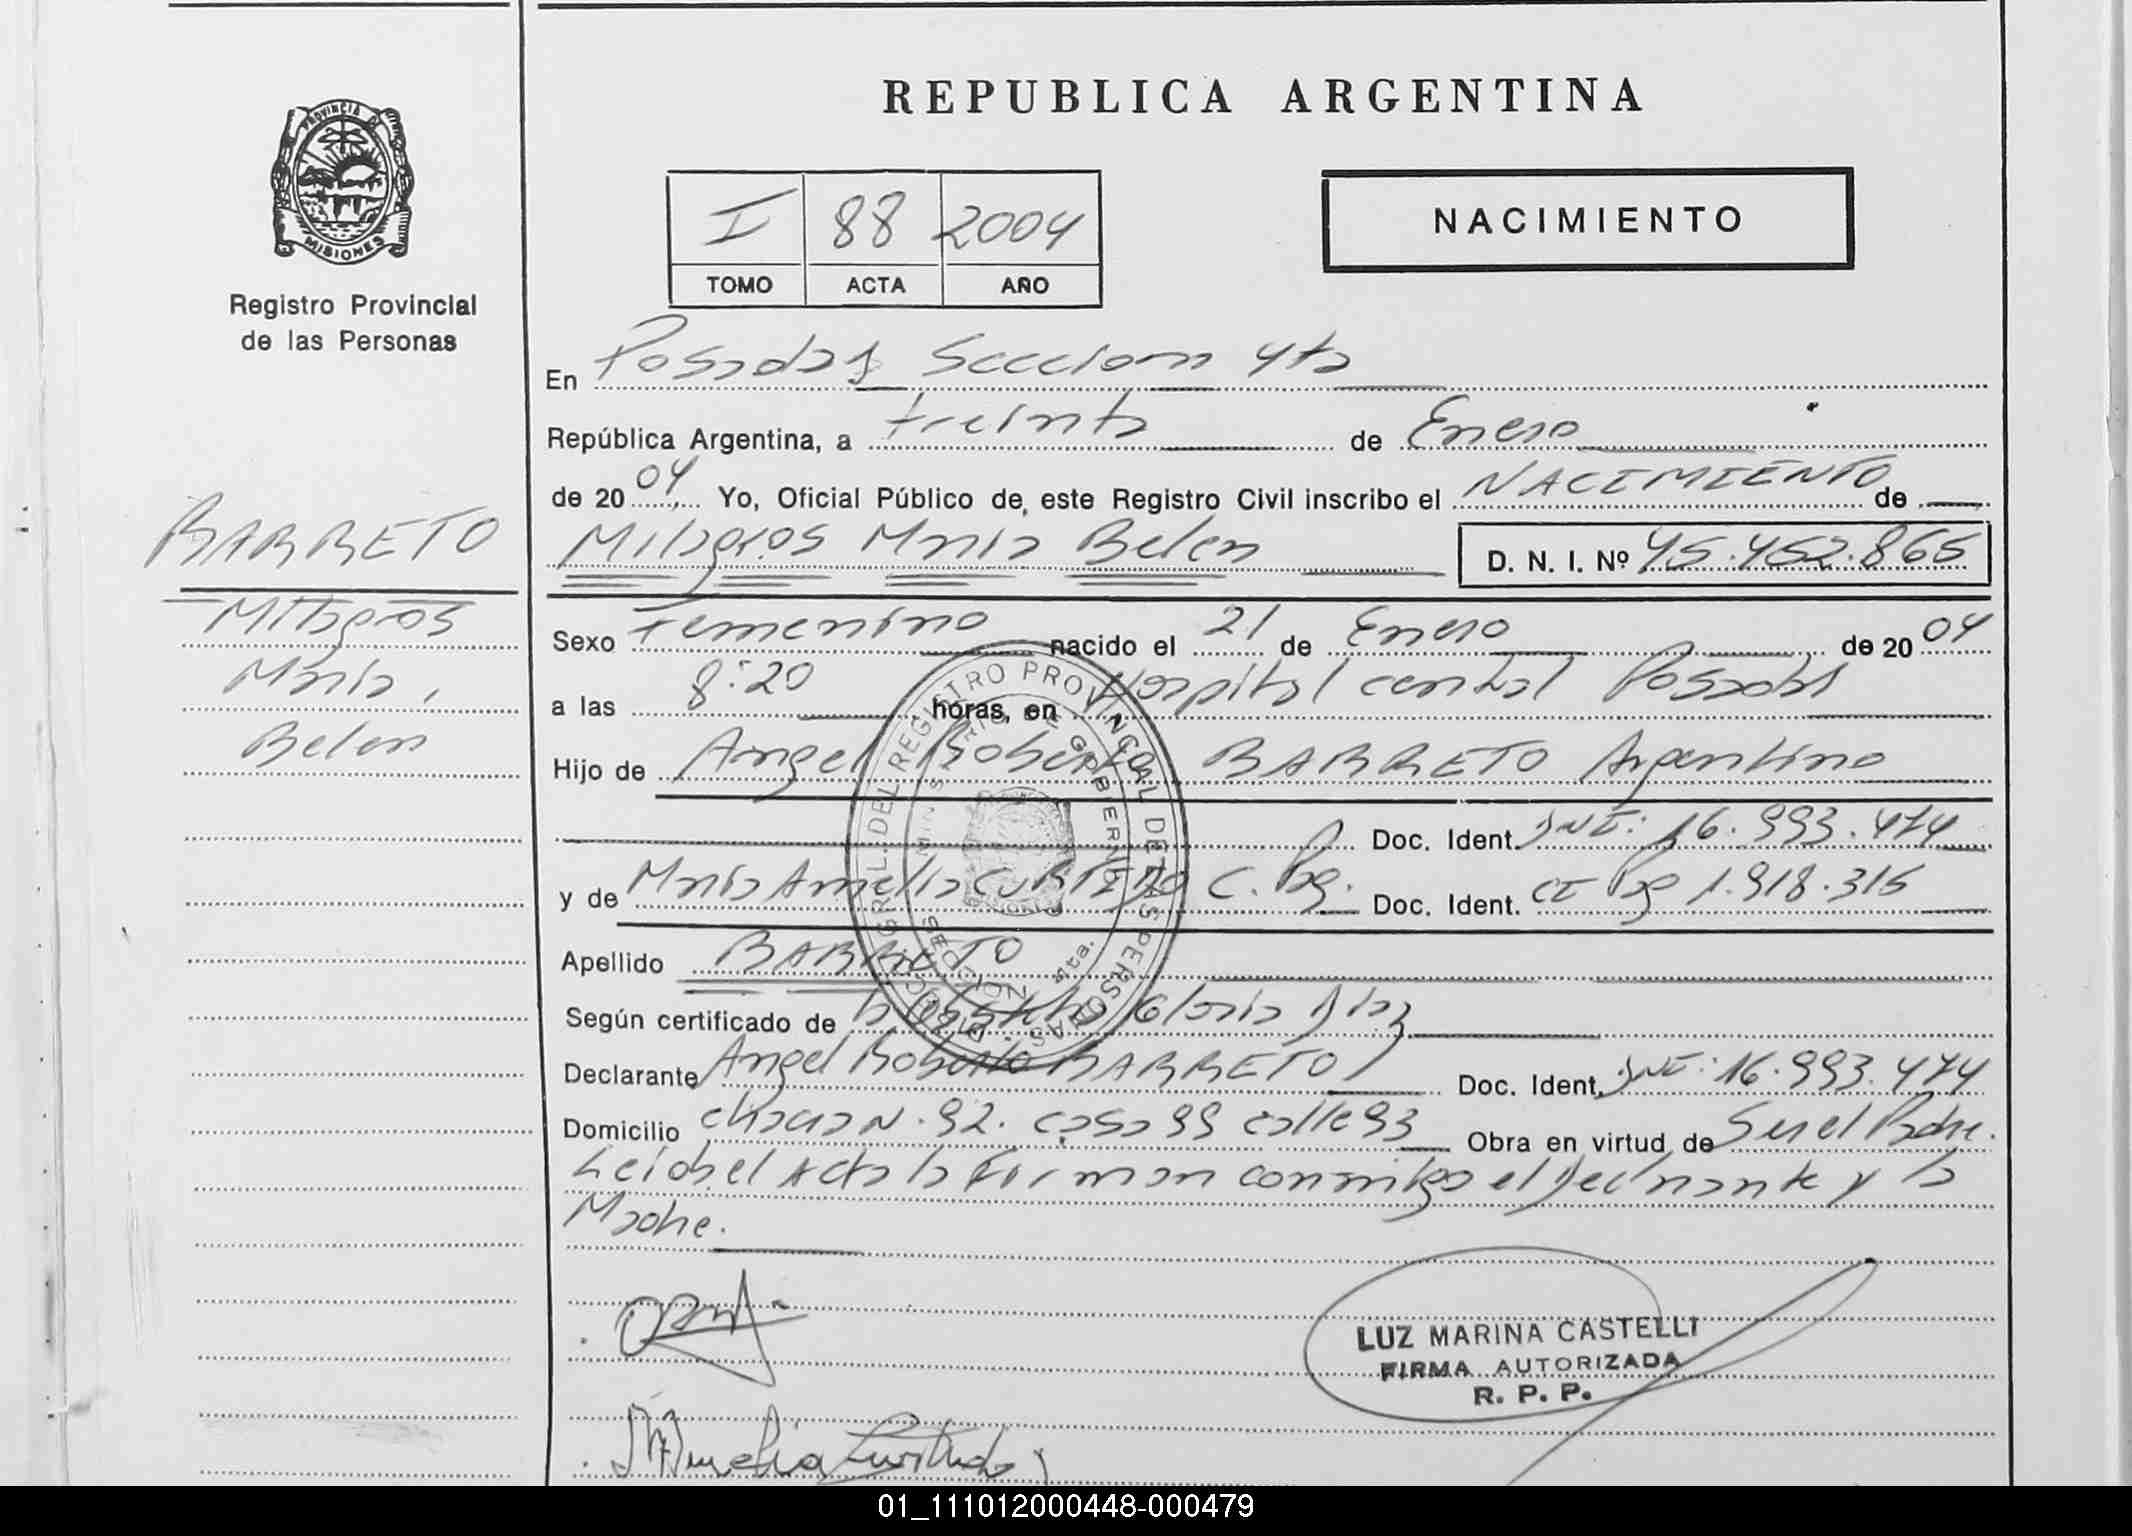 REPUBLICA ARGENTINA
PROVINCIA DE
MISIONES
Registro Provincial
de las Personas
I 88 2004
TOMO ACTA AÑO
NACIMIENTO
En Posadas Seccion 4ta
República Argentina, a treinta de Enero
de 20 04 Yo, Oficial Público de este Registro Civil inscribo el NACIMIENTO de
BARRETO
Milagros María Belen D. N. I. Nº 45.452.865
Milagros
María
Belen
Sexo Femenino nacido el 21 de Enero de 20 04
a las 8:20 horas, en Hospital central Posadas
Hijo de Angel Roberto BARRETO Argentino
Doc. Ident. DNI: 16.993.474
y de María Amelia C. Pg. Doc. Ident. CI Pg 1.918.315
Apellido BARRETO
Según certificado de Gloria Diaz
Declarante Angel Roberto BARRETO Doc. Ident. DNI: 16.993.474
Domicilio chacra N. 92. casa 99 calle 93 Obra en virtud de Ser el Padre.
Leida el Acta la Firman conmigo el Declarante y la
Madre.
DIRECC. GRAL. DEL REGISTRO PROVINCIAL DE LAS PERSONAS
MINISTERIO DE GOBIERNO
SECCION 4ta.
POSADAS
LUZ MARINA CASTELLI
FIRMA AUTORIZADA
R. P. P.
01_111012000448-000479